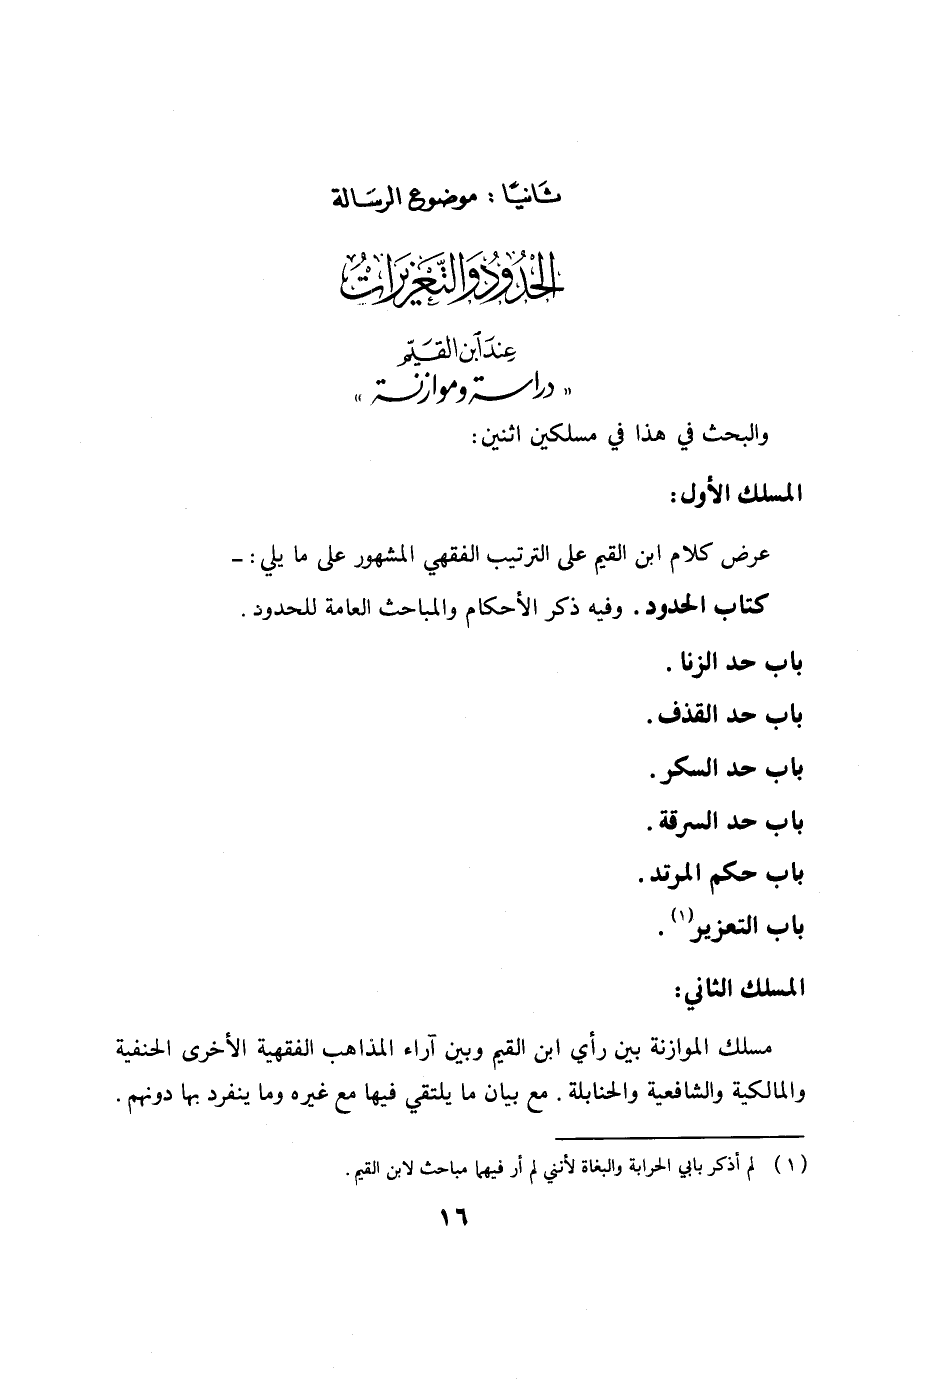 ثانيًا : موضوع الرسالة
الحدود والتعزيرات
عند ابن القيم
« دراسة وموازنة »
والبحث في هذا في مسلكين اثنين :
المسلك الأول :
عرض كلام ابن القيم على الترتيب الفقهي المشهور على ما يلي : -
كتاب الحدود . وفيه ذكر الأحكام والمباحث العامة للحدود .
باب حد الزنا .
باب حد القذف .
باب حد السكر .
باب حد السرقة .
باب حكم المرتد .
باب التعزير(١) .
المسلك الثاني :
مسلك الموازنة بين رأي ابن القيم وبين آراء المذاهب الفقهية الأخرى الحنفية
والمالكية والشافعية والحنابلة . مع بيان ما يلتقي فيها مع غيره وما ينفرد بها دونهم .
(١) لم أذكر بابي الحرابة والبغاة لأنني لم أر فيهما مباحث لابن القيم .
١٦